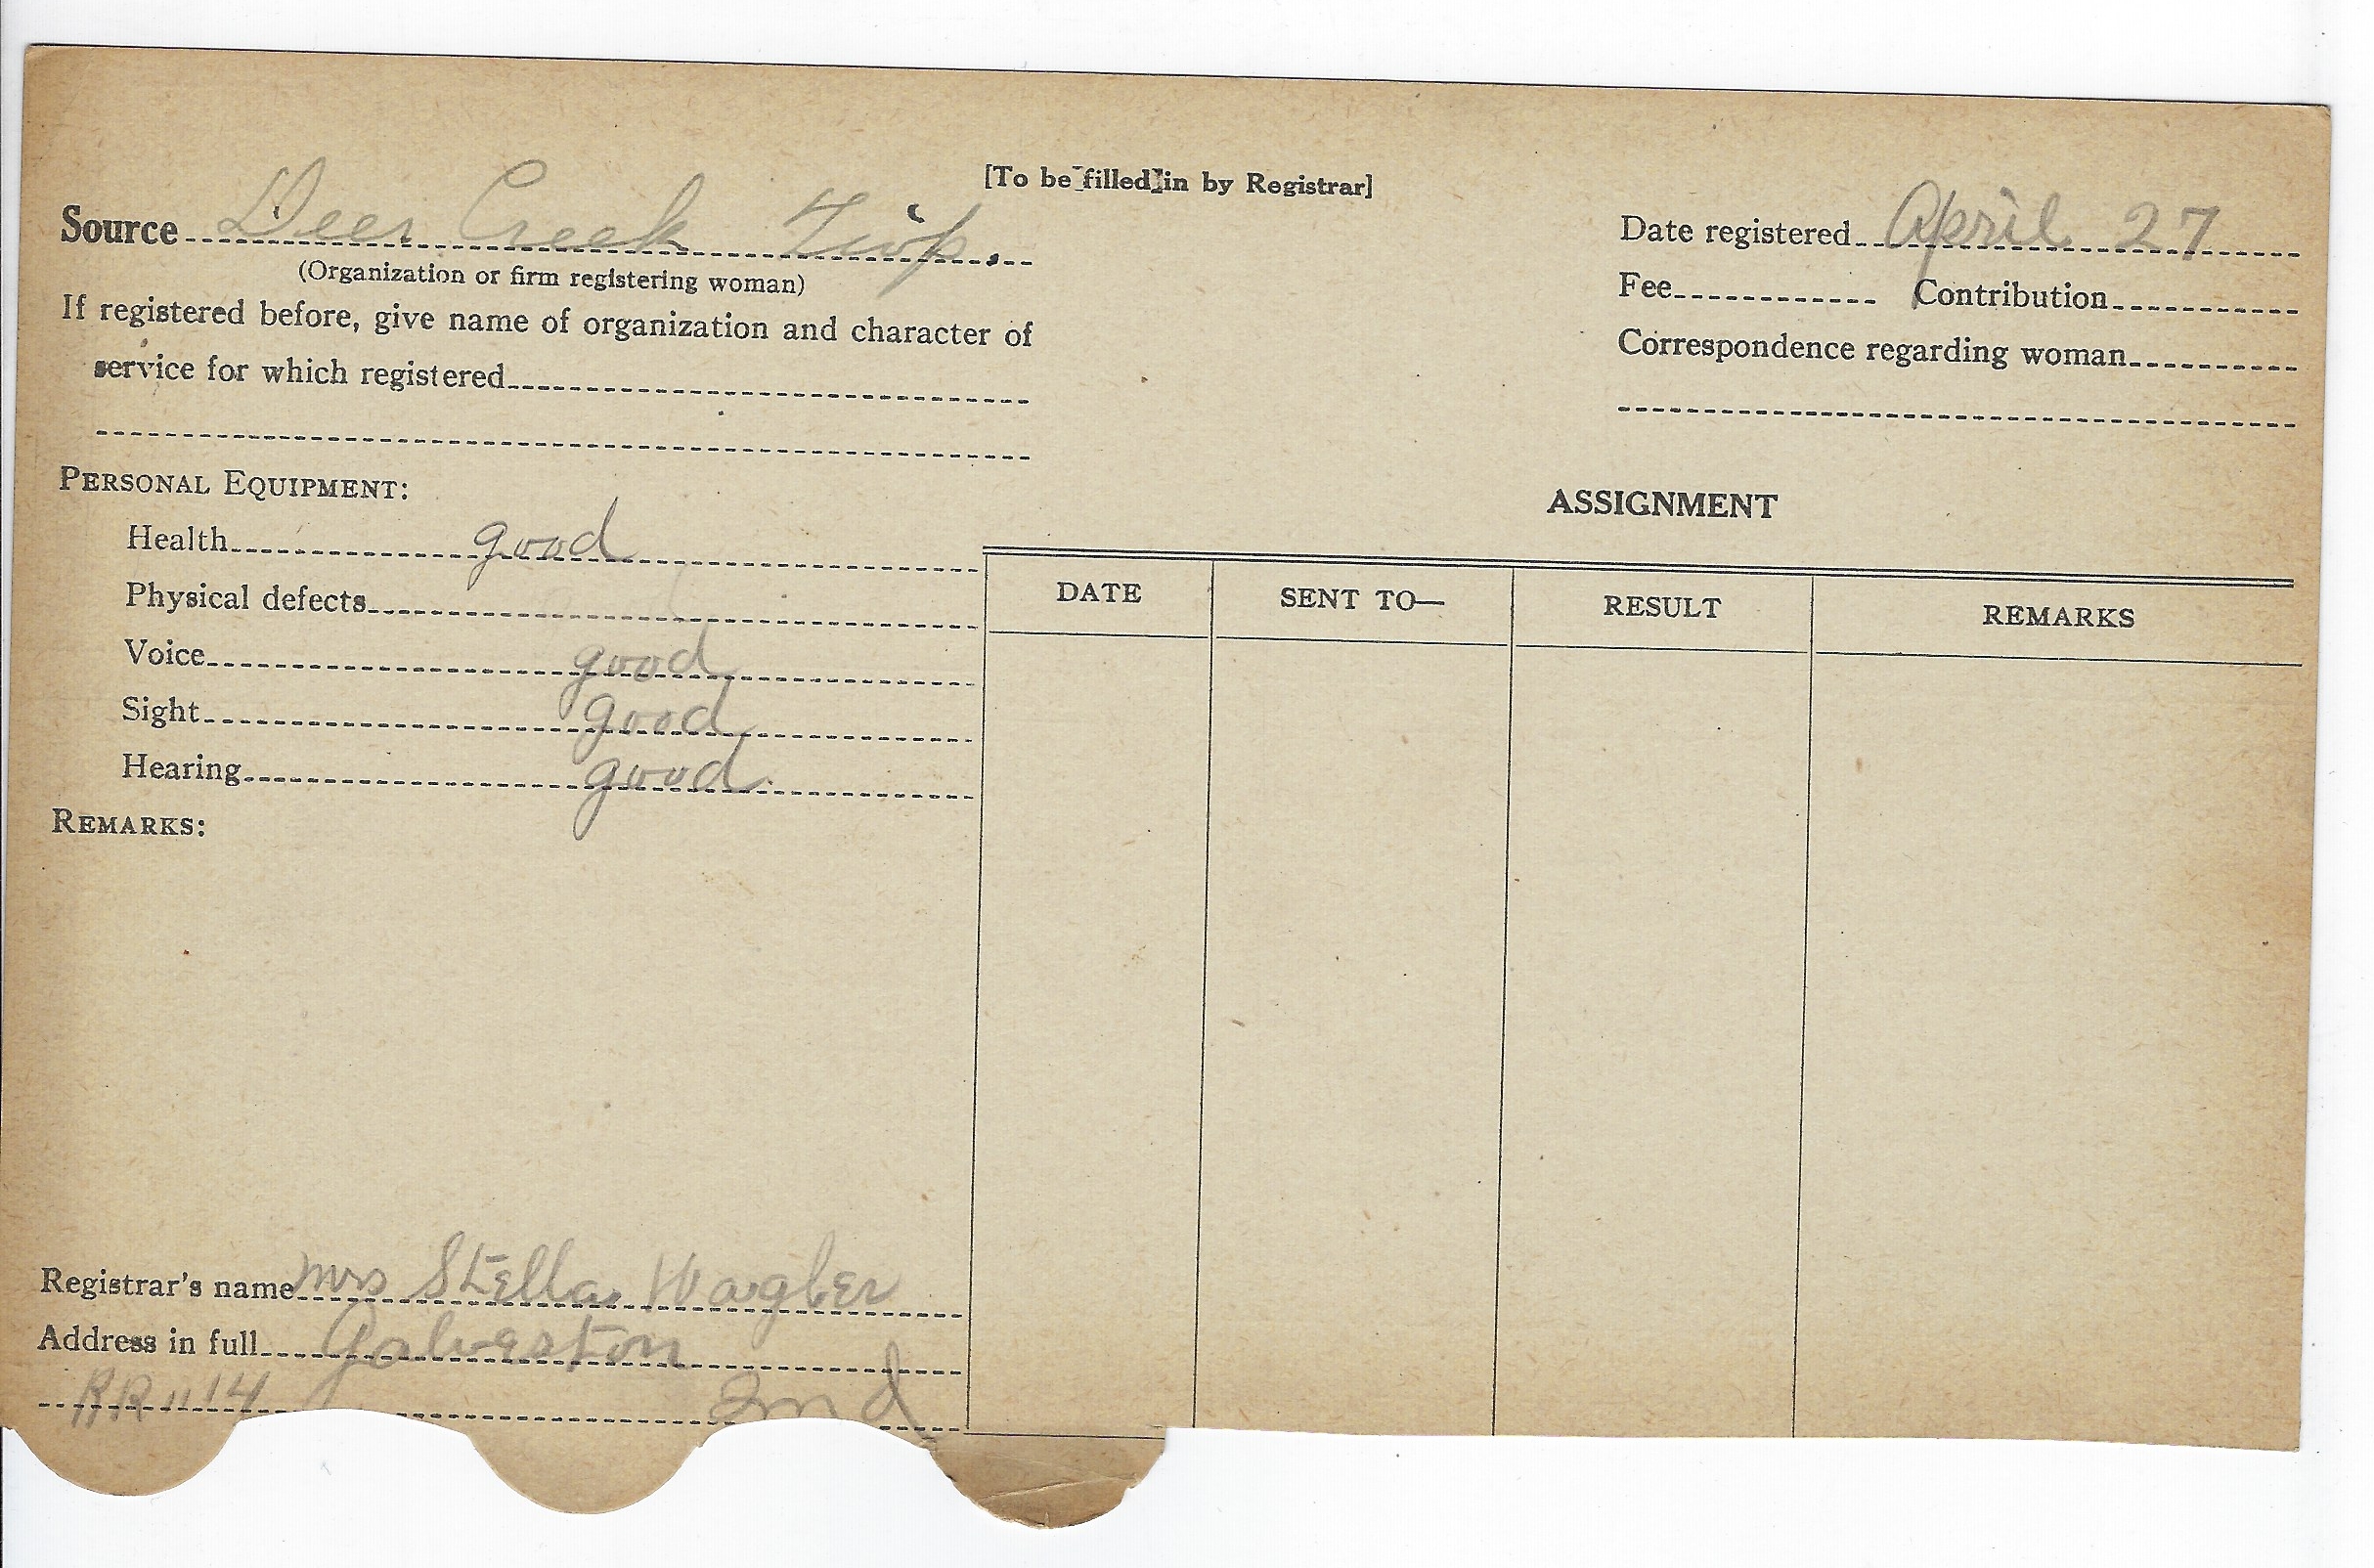 [To be filled in by Registrar]
Source Deer Creek Twp.
(Organization or firm registering woman)
If registered before, give name of organization and character of
service for which registered
Date registered April 27
Fee Contribution
Correspondence regarding woman
PERSONAL EQUIPMENT:
Health good
Physical defects
Voice good
Sight good
Hearing good
REMARKS:
ASSIGNMENT
DATE SENT TO— RESULT REMARKS
Registrar's name Mrs Stella Wagler
Address in full Galveston
RR 14 Ind